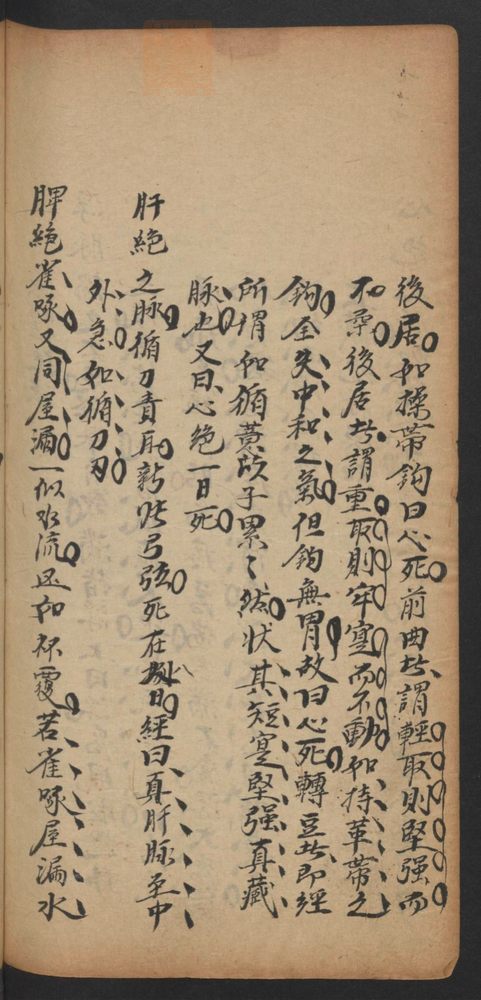 後居如操帶鈎曰心死前曲者謂輕取則堅强而
不柔後居者謂重取則牢寔而不動如持革帶之
鈎全失中和之氣但鈎無胃故曰心死轉豆者即經
所謂如循薏苡子累々然狀其短寔堅强真藏
脉也又曰心絶一日死
肝絶之脉循刀責責新張弓弦死在八日經曰真肝脉至中
外急如循刀刃
脾絶雀啄又同屋漏一似水流还如杯覆若雀啄屋漏水